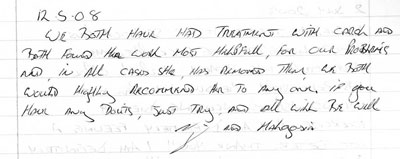 12.5.08
WE BOTH HAVE HAD TREATMENT WITH CAROL AND
BOTH FOUND HER WORK MOST HELPFULL, FOR OUR PROBLEMS
AND, IN ALL CASES SHE, HAS REMOVED THEM, WE BOTH
WOULD HIGHLY RECOMMEND HER TO ANY ONE. IF YOU
HAVE ANY DOUTS, JUST TRY, AND ALL WILL BE WELL
AND